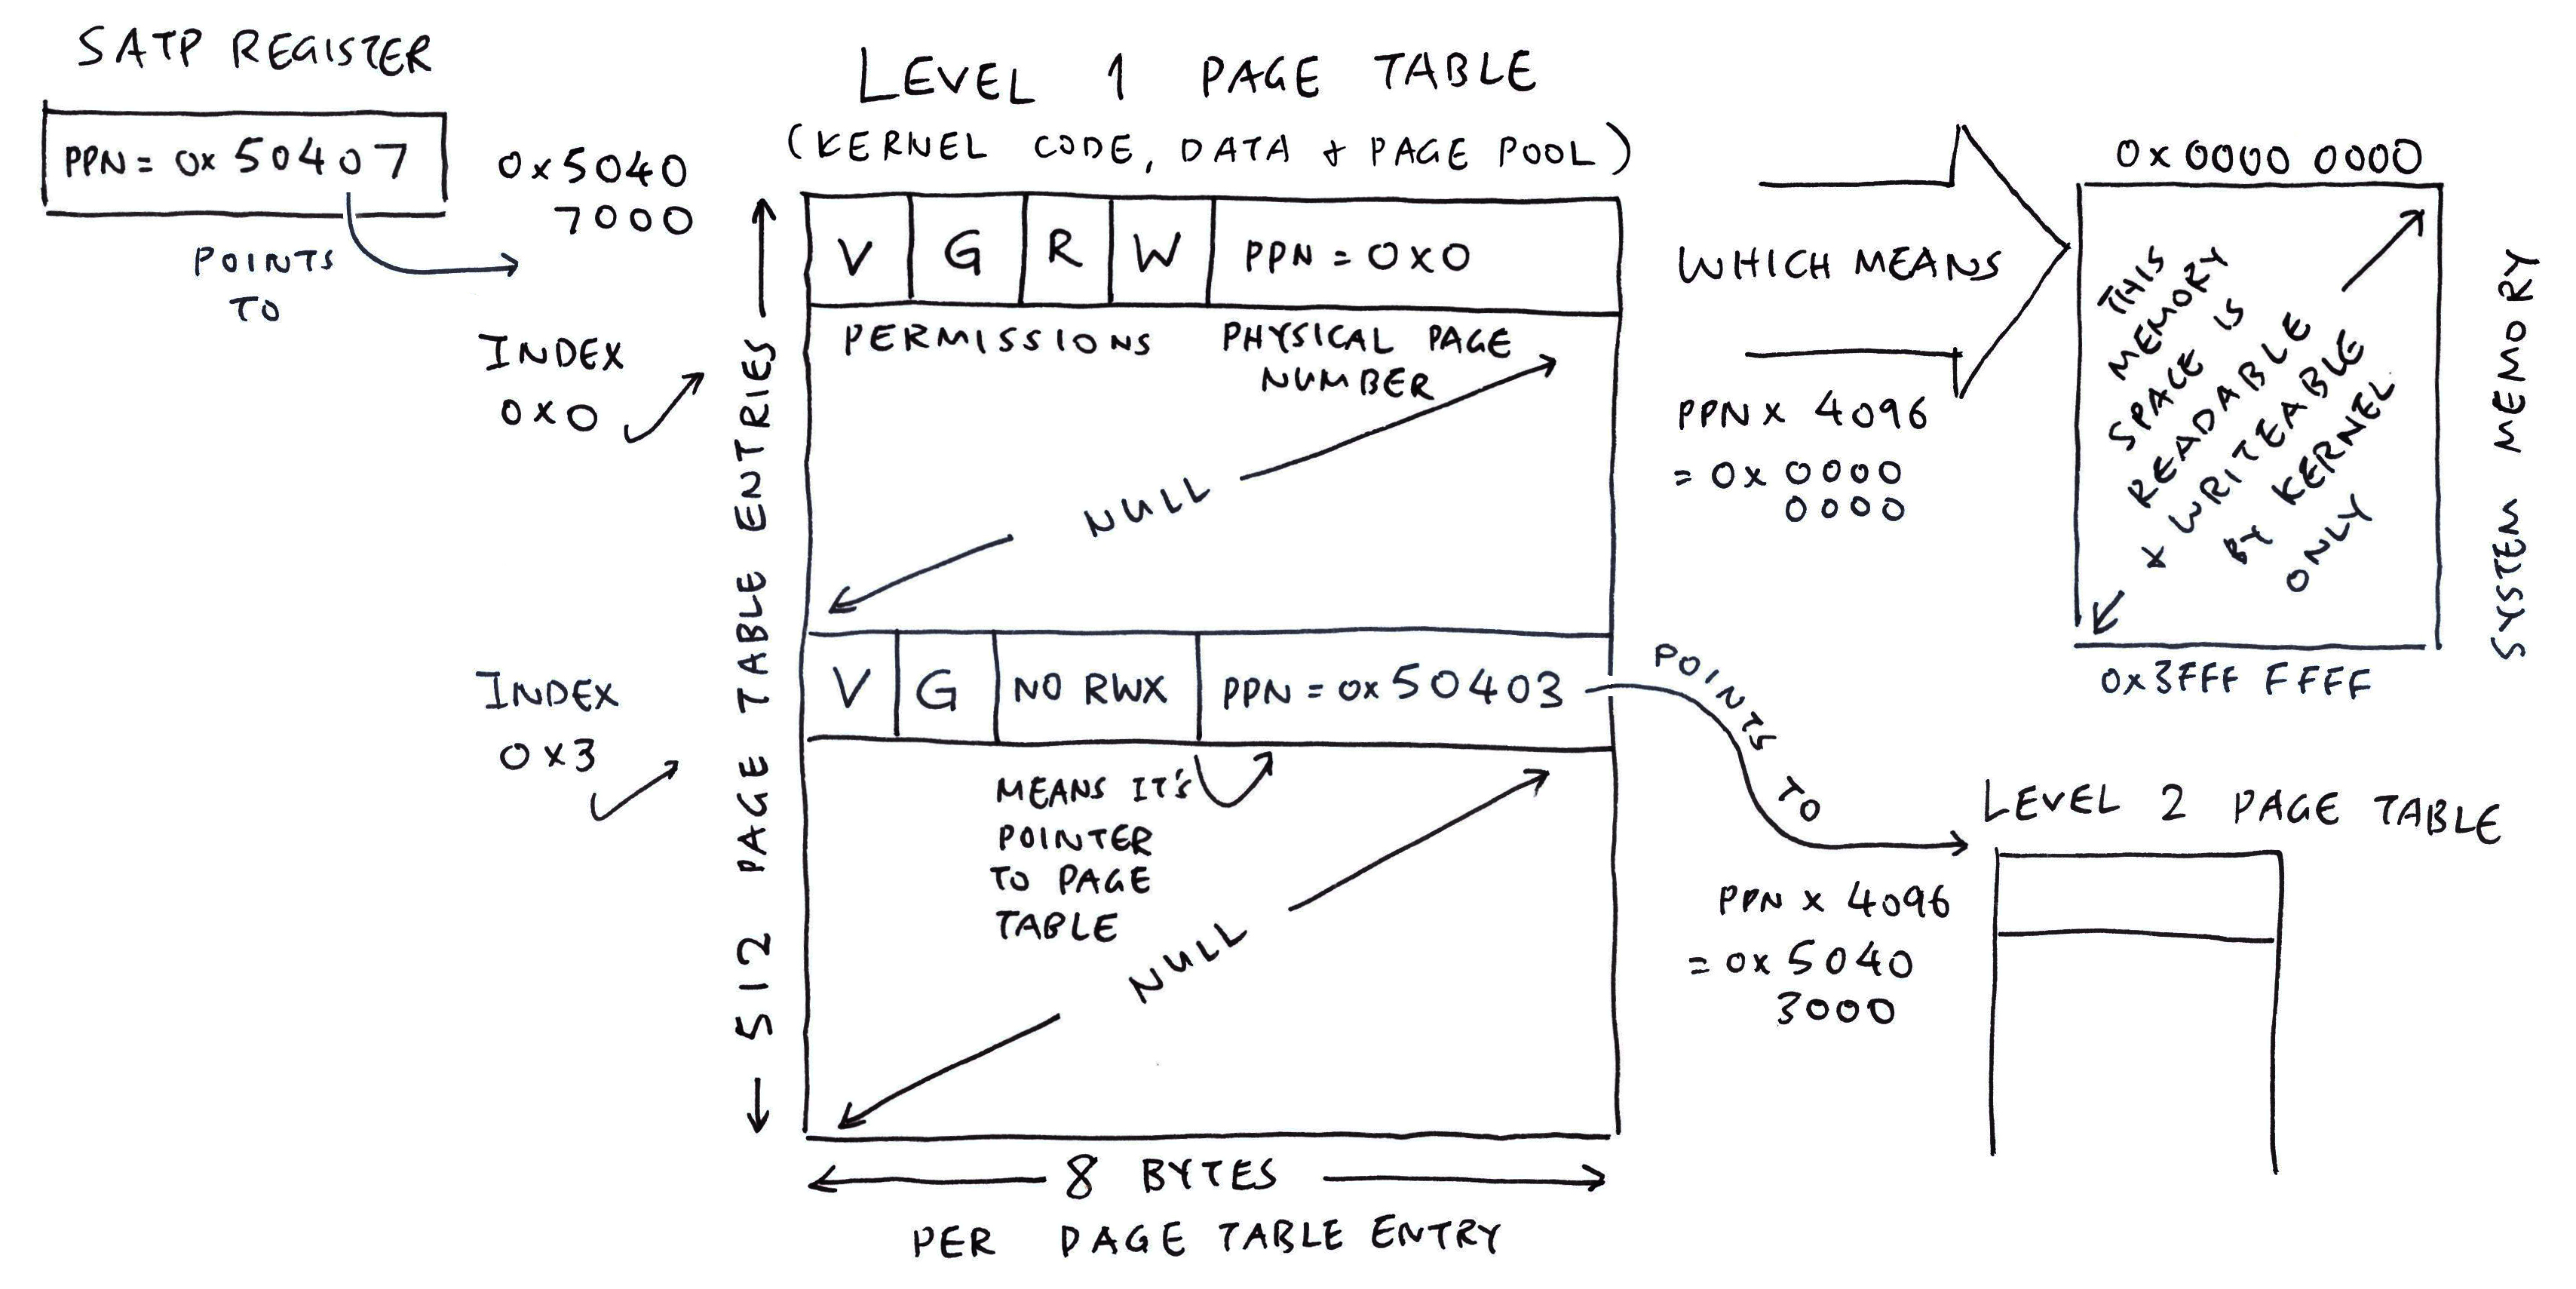 SATP REGISTER
PPN = 0x 50407
POINTS
TO
0x5040
7000
INDEX
0x0
INDEX
0x3
512 PAGE TABLE ENTRIES
LEVEL 1 PAGE TABLE
(KERNEL CODE, DATA + PAGE POOL)
V G R W PPN = 0x0
PERMISSIONS PHYSICAL PAGE
NUMBER
NULL
V G NO RWX PPN = 0x 50403
MEANS IT'S
POINTER
TO PAGE
TABLE
NULL
8 BYTES
PER PAGE TABLE ENTRY
WHICH MEANS
PPN x 4096
= 0x 0000
0000
0x 0000 0000
THIS
MEMORY
SPACE IS
READABLE
+ WRITEABLE
BY KERNEL
ONLY
0x3FFF FFFF
SYSTEM MEMORY
POINTS TO
LEVEL 2 PAGE TABLE
PPN x 4096
= 0x 5040
3000